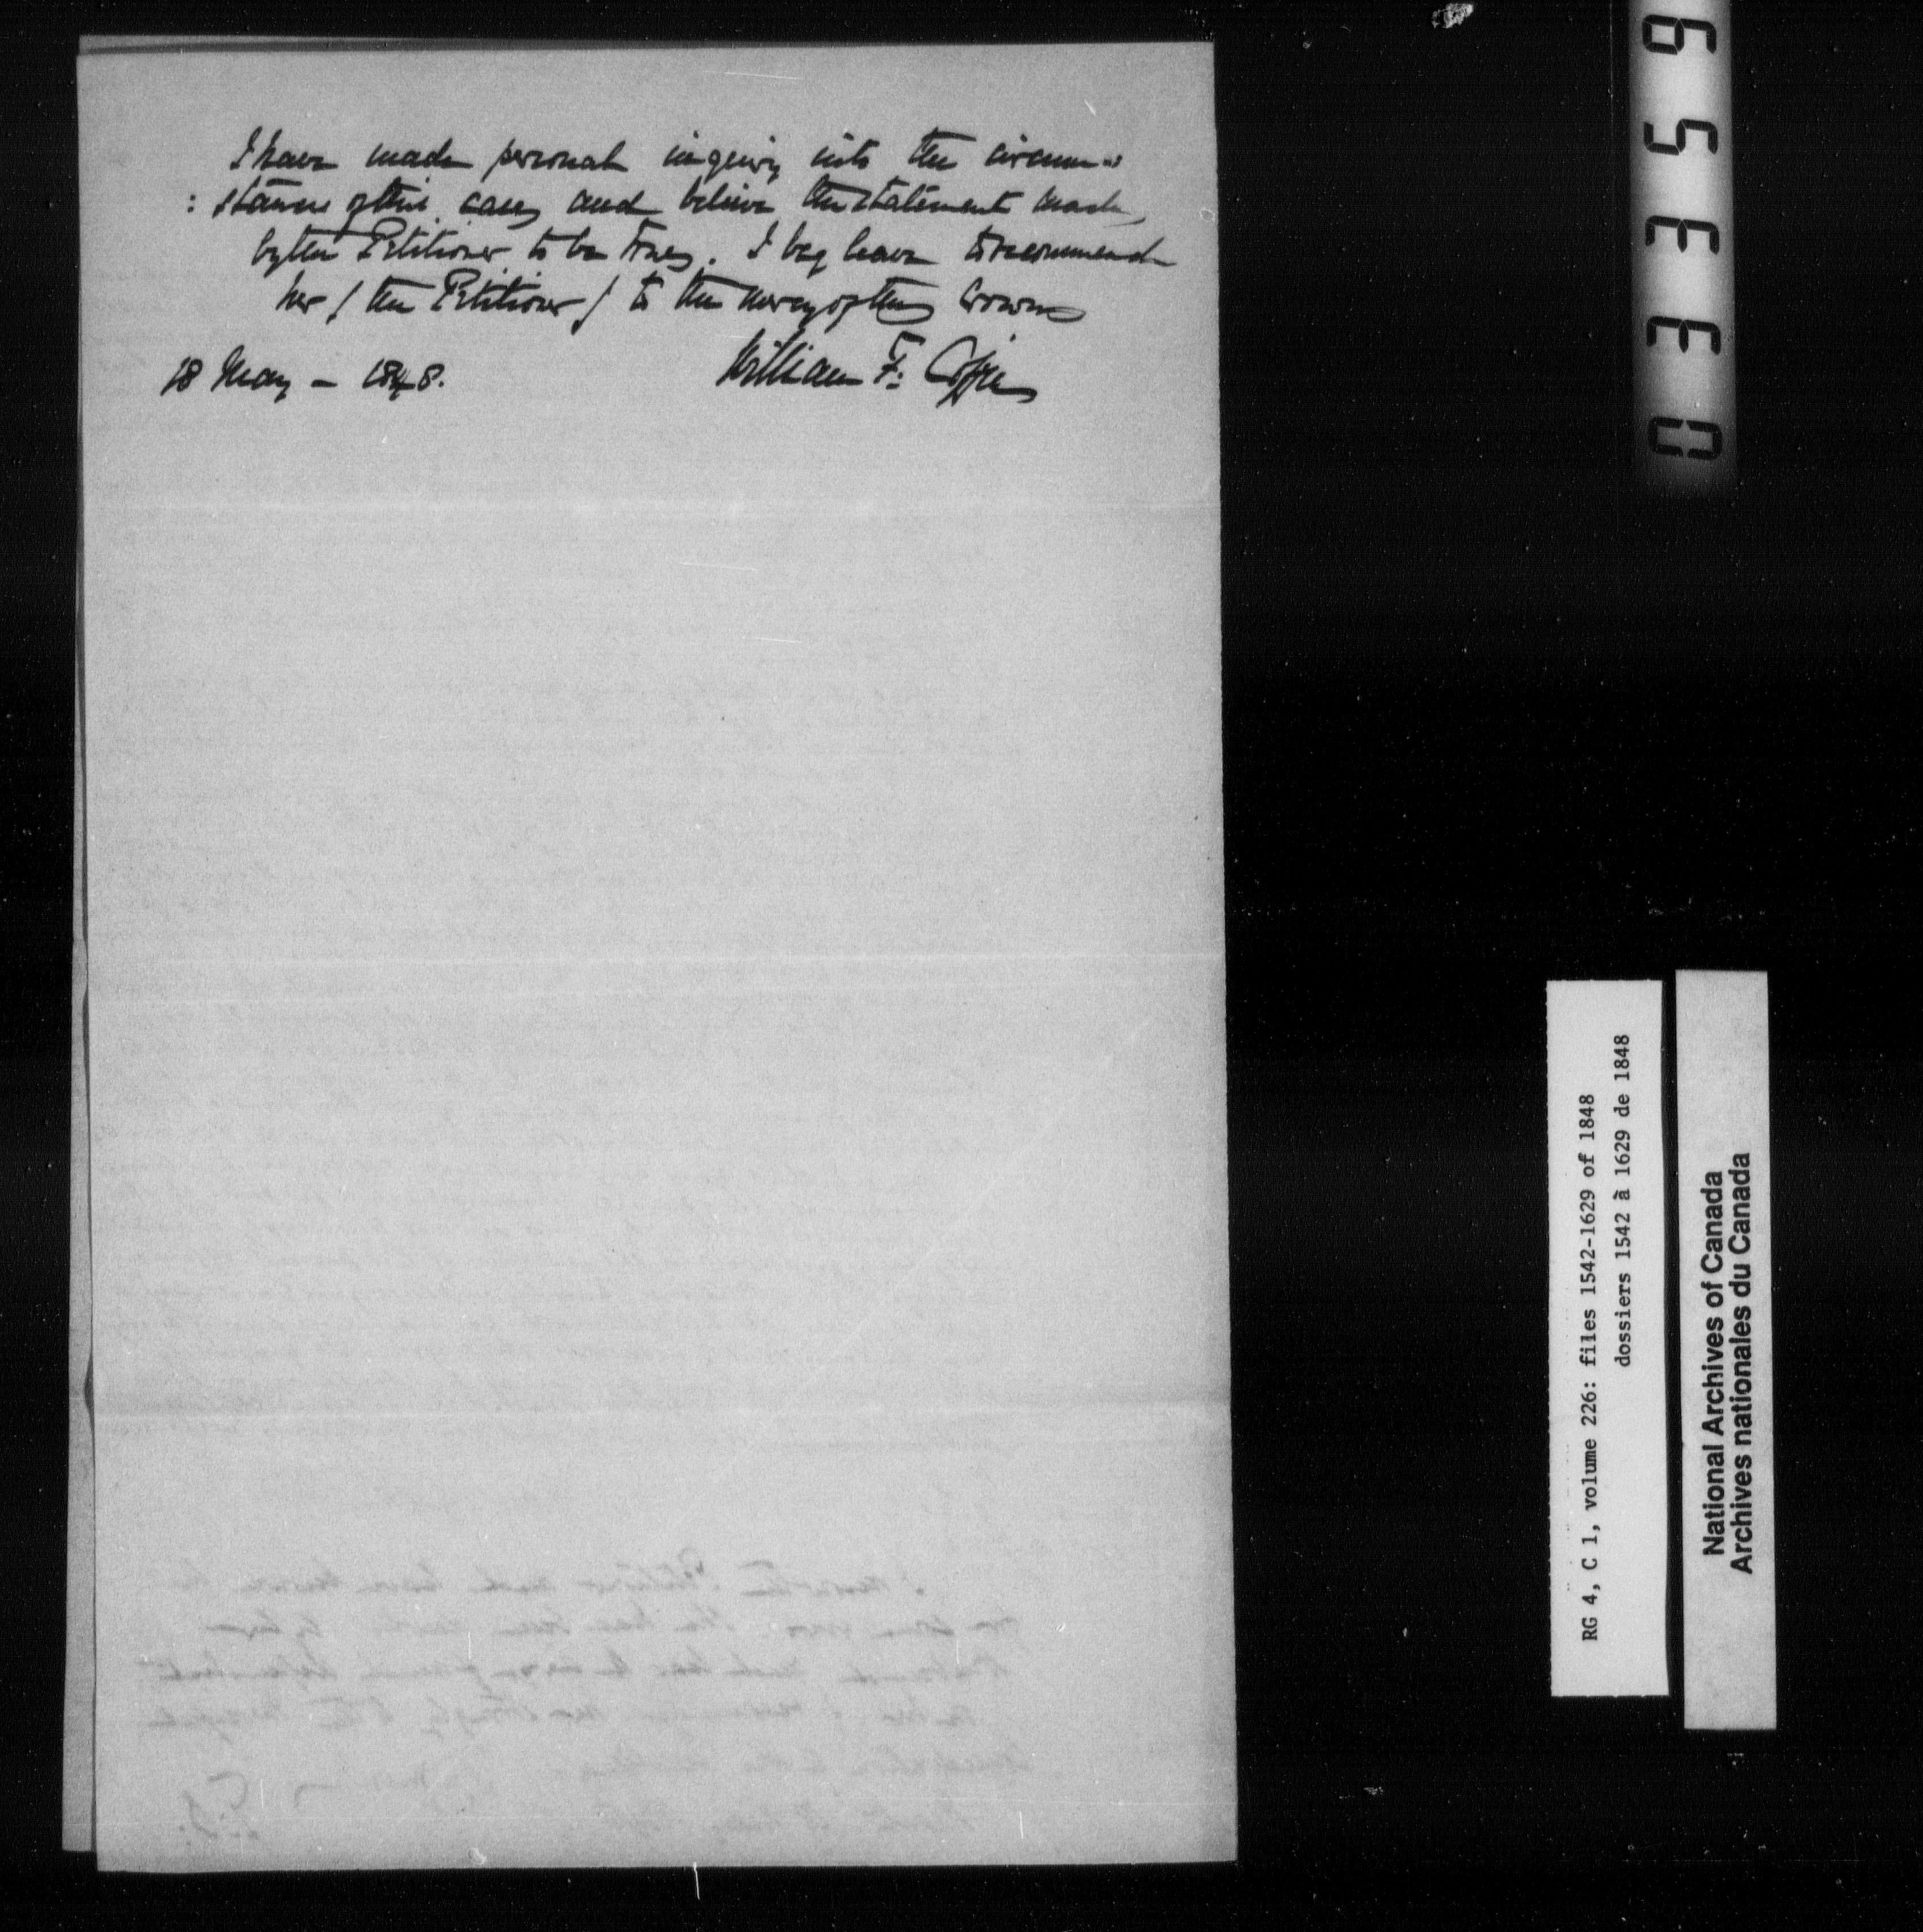 I have made personal inquiry into the circum=
: stances of this case, and believe the statement made,
by the Petitioner to be true. I beg leave to recommend
her / the Petitioner / to the mercy of the Crown
18 May – 1848.
William F: Coffin
03359
RG 4, C 1, volume 226: files 1542-1629 of 1848
dossiers 1542 à 1629 de 1848
National Archives of Canada
Archives nationales du Canada